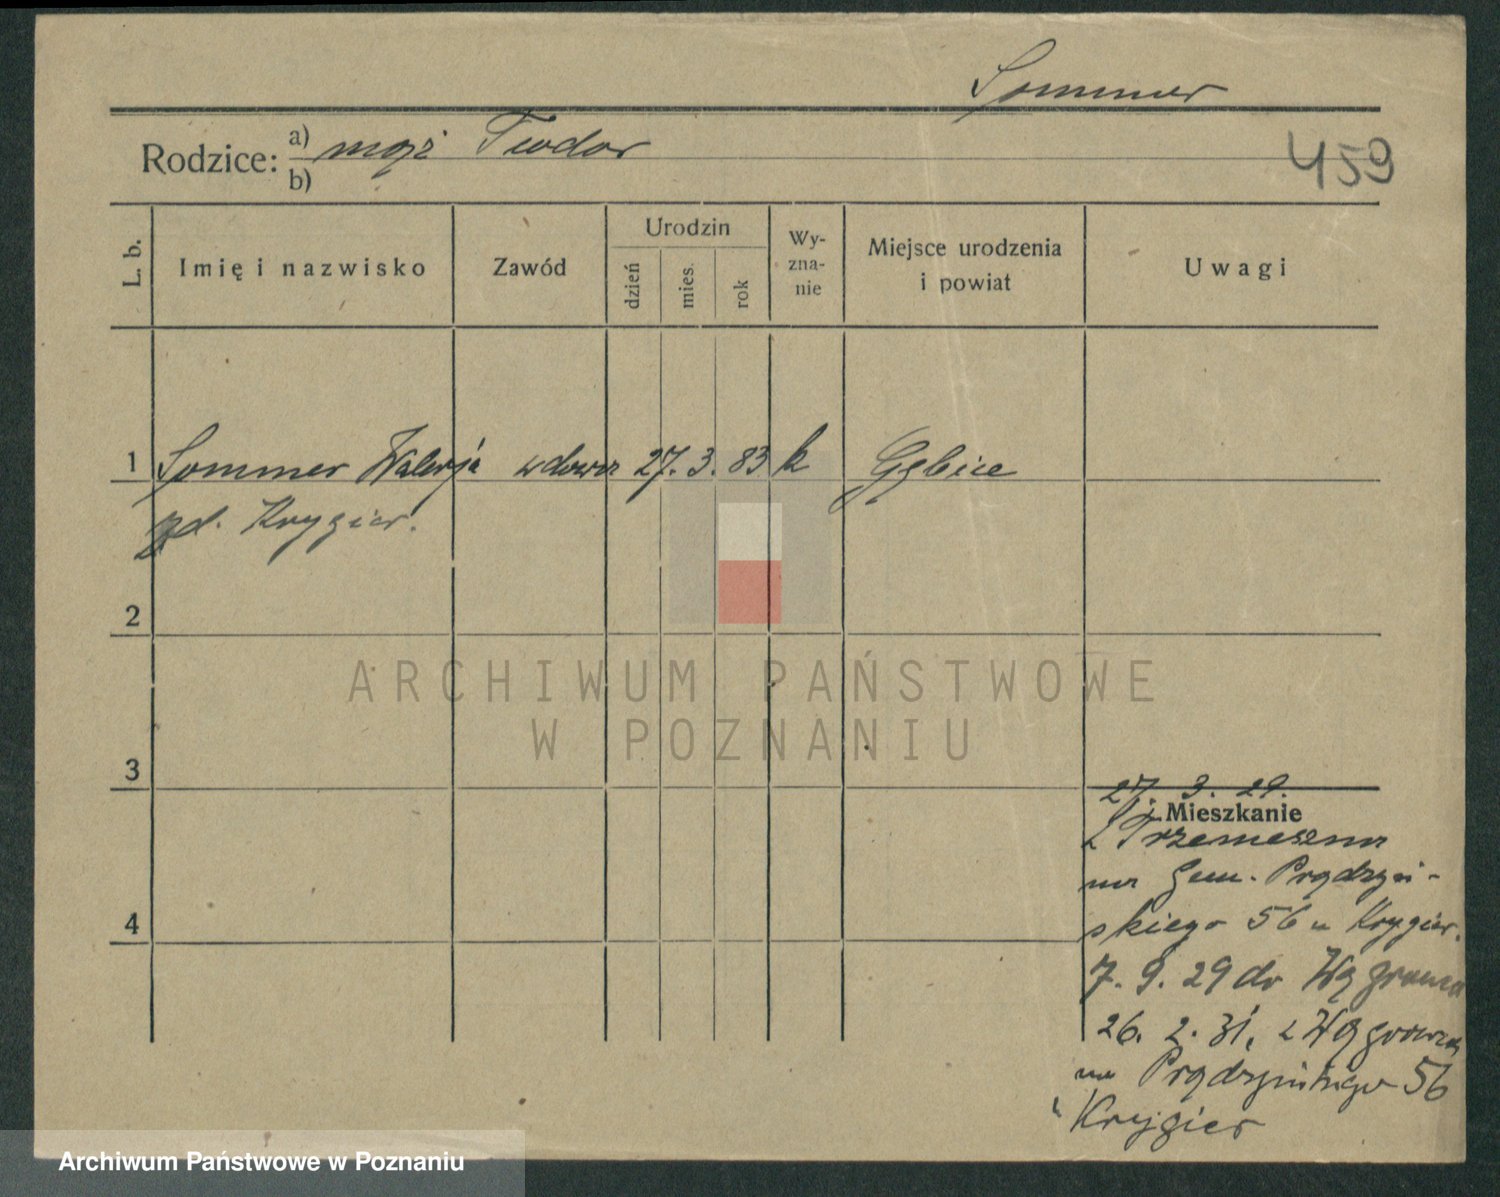 Sommer
Rodzice: a) mąż Teodor
b)
459
L. b.
Imię i nazwisko
Zawód
Urodzin
dzień
mies.
rok
Wy-
zna-
nie
Miejsce urodzenia
i powiat
Uwagi
1 Sommer Walerja wdowa 27. 3. 83 k Gębice
zd. Krygier.
2
ARCHIWUM PAŃSTWOWE
W POZNANIU
3
27. 3. 29.
Mieszkanie
z Trzemeszna
na Gen. Prądzyń-
skiego 56 u Krygier.
4
7. 9. 29 do Wągrowca
26. 2. 31. z Wągrowca
na Prądzyńskiego 56
u Krygier
Archiwum Państwowe w Poznaniu